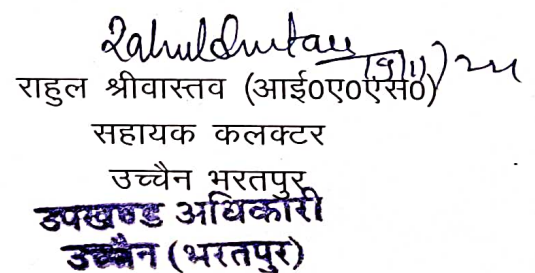 राहुल श्रीवास्तव (आई०ए०एस०)
सहायक कलक्टर
उच्चैन भरतपुर
उपखण्ड अधिकारी
उच्चैन (भरतपुर)